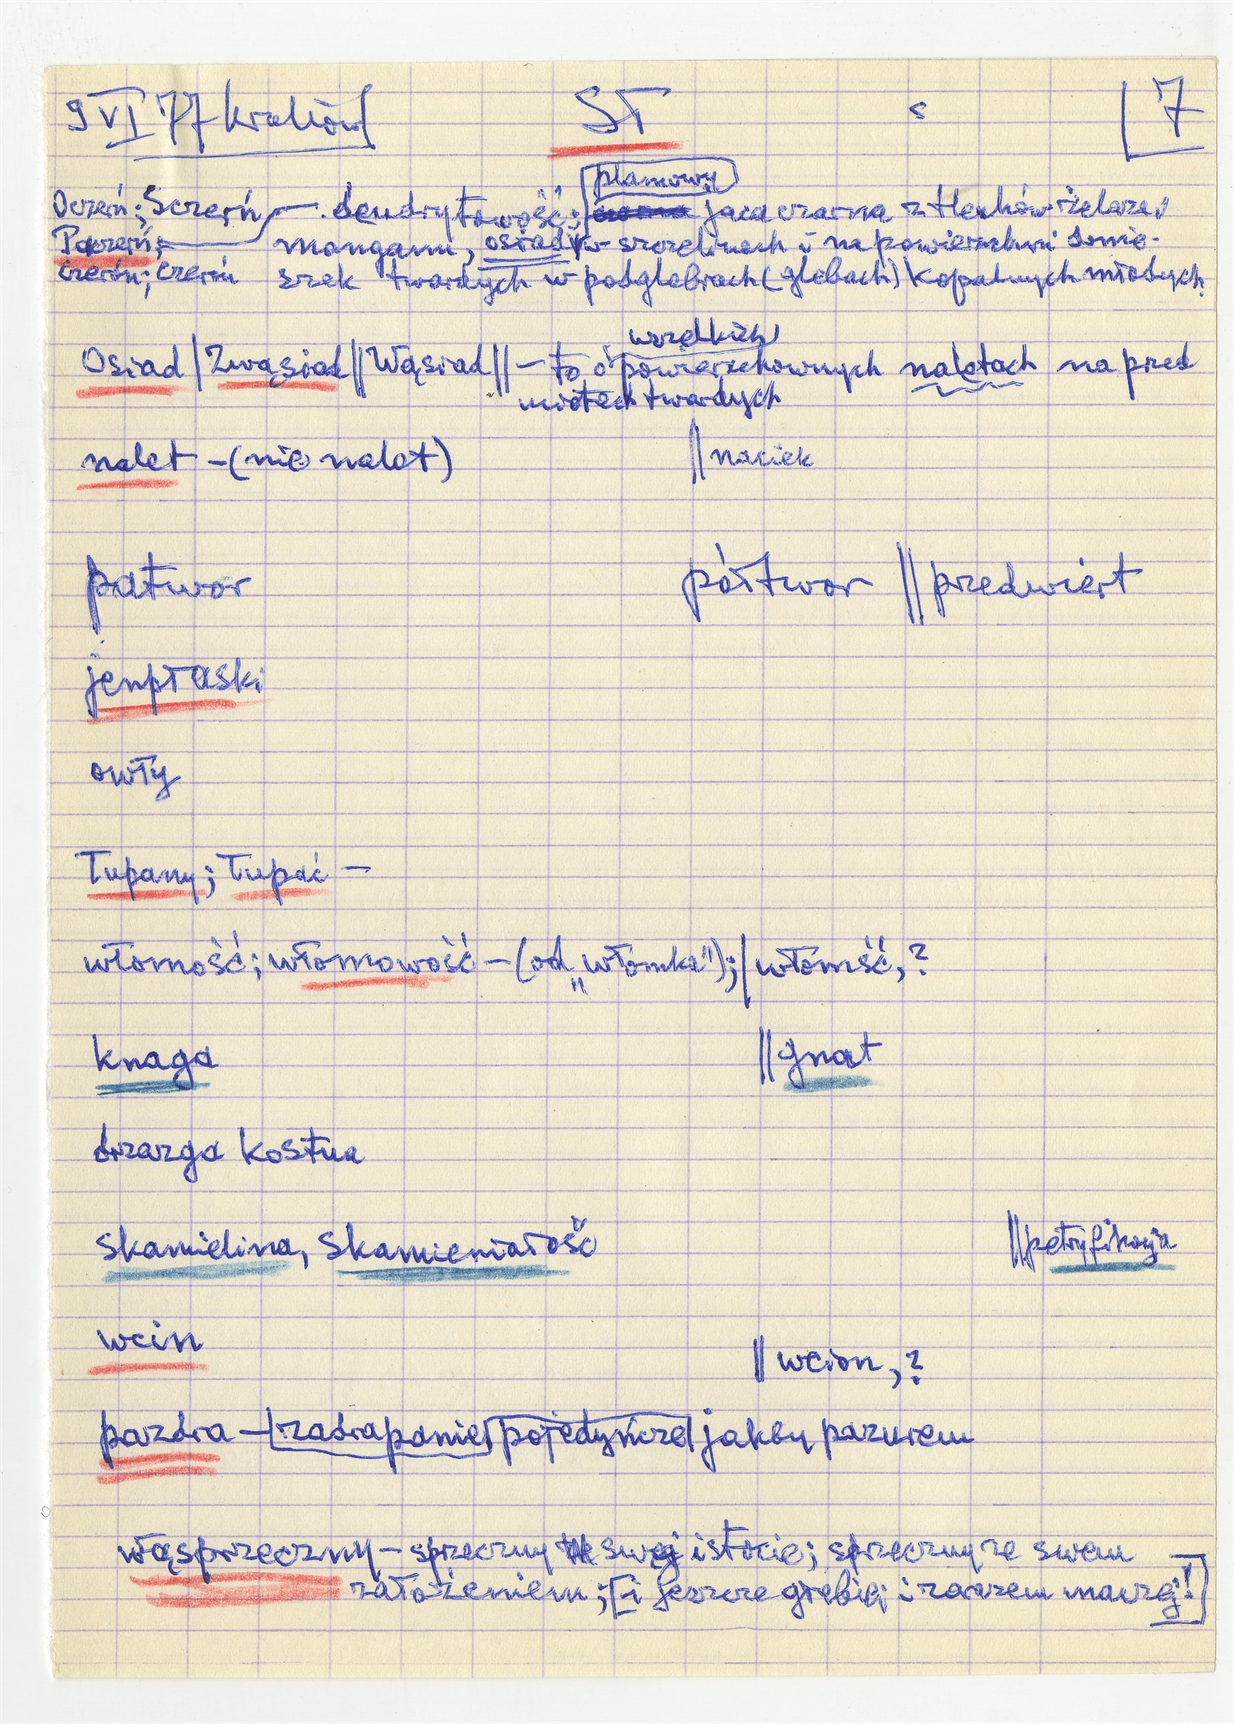 9 VI 77 Kraków ST s 7
plamowy
Oczerń; Sczerń, — dendrytowość; jaca czarna z tlenków żelaza i
Poczerń; manganu, osiad w szczelinach i na powierzchni
czerń; czerń szek twardych w podglebiach (glebach) kopalnych młodych,
wszelkich
Osiad | Zwąsiad || Wąsiad || — to o powierzchownych nalotach na przed
miotach twardych
nalet — (nie nalot) || naciek
patwor półtwor || przedwiert
jenpłaski
owły
Łupany; Łupać —
włomość; włomowość — (od „włomka"); | włomść, ?
knaga || gnat
drzazga kostna
skamielina, skamieniałość || petryfikacja
wcin
|| wcion, ?
pazdra — zadrapanie pojedyńcze jakby pazurem
wląsprzeczny — sprzeczny w swej istocie; sprzeczny ze swem
założeniem; [i jeszcze głębiej i zarazem inaczej!]